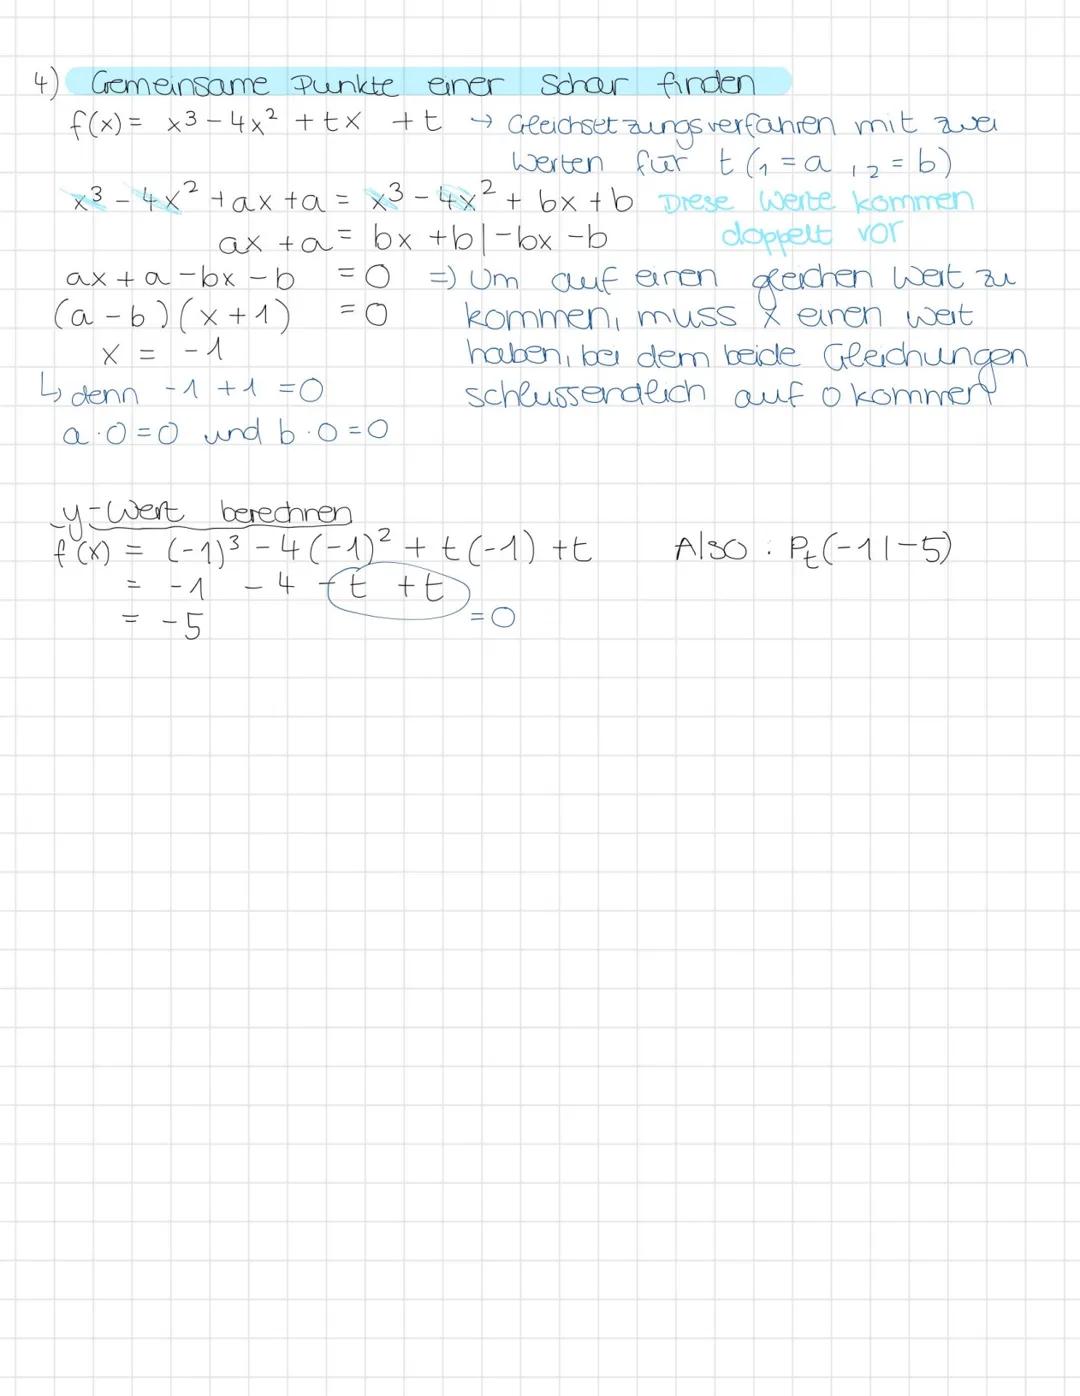 4) Gemeinsame Punkte einer Schar finden
f(x) = x³ - 4x² + tx + t → Gleichsetzungsverfahren mit zwei
Werten für t (₁ = a , ₂ = b)
x³ - 4x² + ax + a = x³ - 4x² + bx + b Diese Werte kommen
ax + a = bx + b | -bx -b doppelt vor
ax + a - bx - b = 0 => Um auf einen gleichen Wert zu
(a - b)(x + 1) = 0 kommen, muss x einen Wert
x = -1 haben, bei dem beide Gleichungen
↳ denn -1 + 1 = 0 schlussendlich auf 0 kommen
a · 0 = 0 und b · 0 = 0
y-Wert berechnen
f(x) = (-1)³ - 4(-1)² + t(-1) + t Also : Pₜ(-1|-5)
= -1 - 4 - t + t = 0
= -5